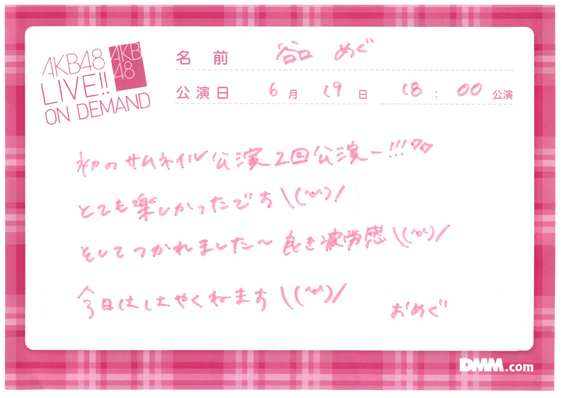 AKB48
LIVE!!
ON DEMAND
AKB
48
名 前 谷口 めぐ
公演日 6月 19日 18:00公演
初のサムネイル公演2回公演ー!!!
とても楽しかったです\(^^)/
そしてつかれました〜良き疲労感\(^^)/
今日ははやくねます\(^^)/
おめぐ
DMM.com